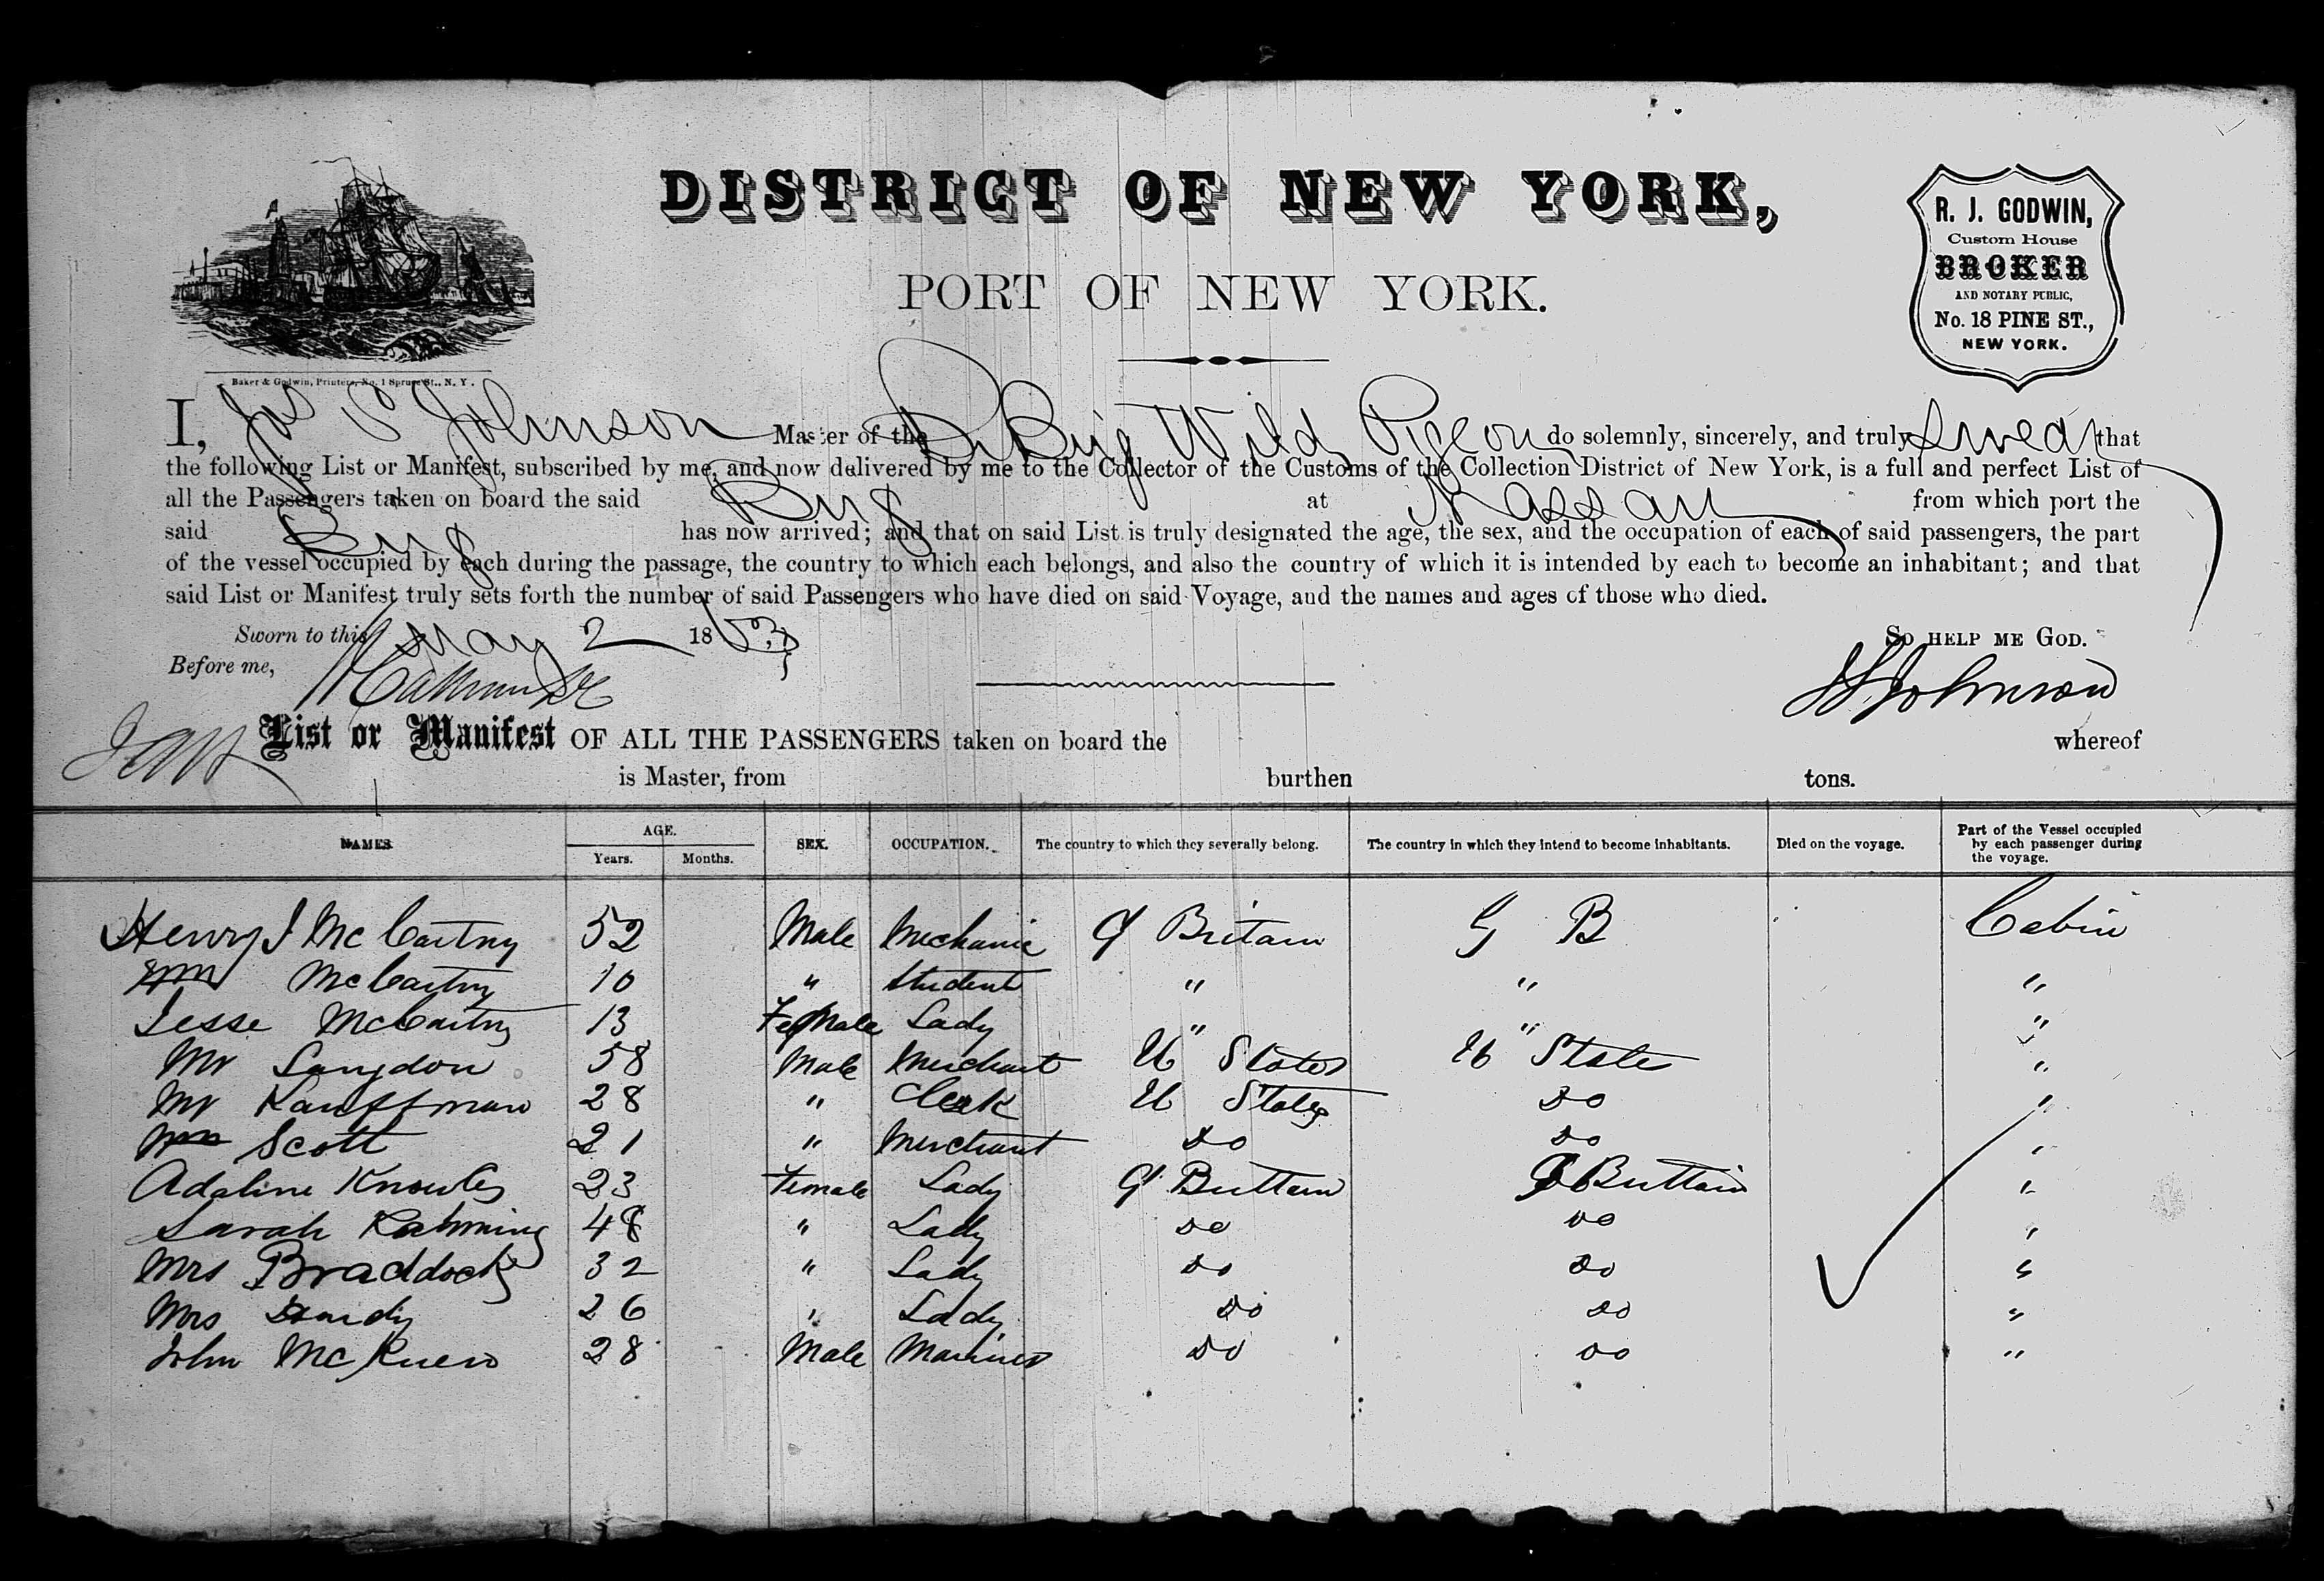 DISTRICT OF NEW YORK,
PORT OF NEW YORK.
R. J. GODWIN,
Custom House
BROKER
AND NOTARY PUBLIC,
No. 18 PINE ST.,
NEW YORK.
Baker & Godwin, Printers, No. 1 Spruce St., N. Y.
I, Jas S Johnson Master of the Br Brig Wild Pigeon do solemnly, sincerely, and truly swear that
the following List or Manifest, subscribed by me, and now delivered by me to the Collector of the Customs of the Collection District of New York, is a full and perfect List of
all the Passengers taken on board the said Brig at Nassau from which port the
said Brig has now arrived; and that on said List is truly designated the age, the sex, and the occupation of each of said passengers, the part
of the vessel occupied by each during the passage, the country to which each belongs, and also the country of which it is intended by each to become an inhabitant; and that
said List or Manifest truly sets forth the number of said Passengers who have died on said Voyage, and the names and ages of those who died.
Sworn to this May 2 1863 So help me God.
Before me, J S Johnson
List or Manifest OF ALL THE PASSENGERS taken on board the whereof
is Master, from burthen tons.
NAMES AGE. Years. Months. SEX. OCCUPATION. The country to which they severally belong. The country in which they intend to become inhabitants. Died on the voyage. Part of the Vessel occupied by each passenger during the voyage.
Henry J McCartny 52 Male Mechanic G Britain G B Cabin
Wm McCartny 10 " Student " " "
Jesse McCartny 13 Female Lady " " "
Mr Langdon 58 Male Merchant U States U State "
Mr Kauffman 28 " Clerk U States Do "
Wm Scott 21 " Merchant Do Do "
Adaline Knowles 23 Female Lady G Brittain G Brittain "
Sarah 48 " Lady Do Do "
Mrs Braddock 32 " Lady Do Do "
Mrs 26 " Lady Do Do "
John 28 Male Mariner Do Do "